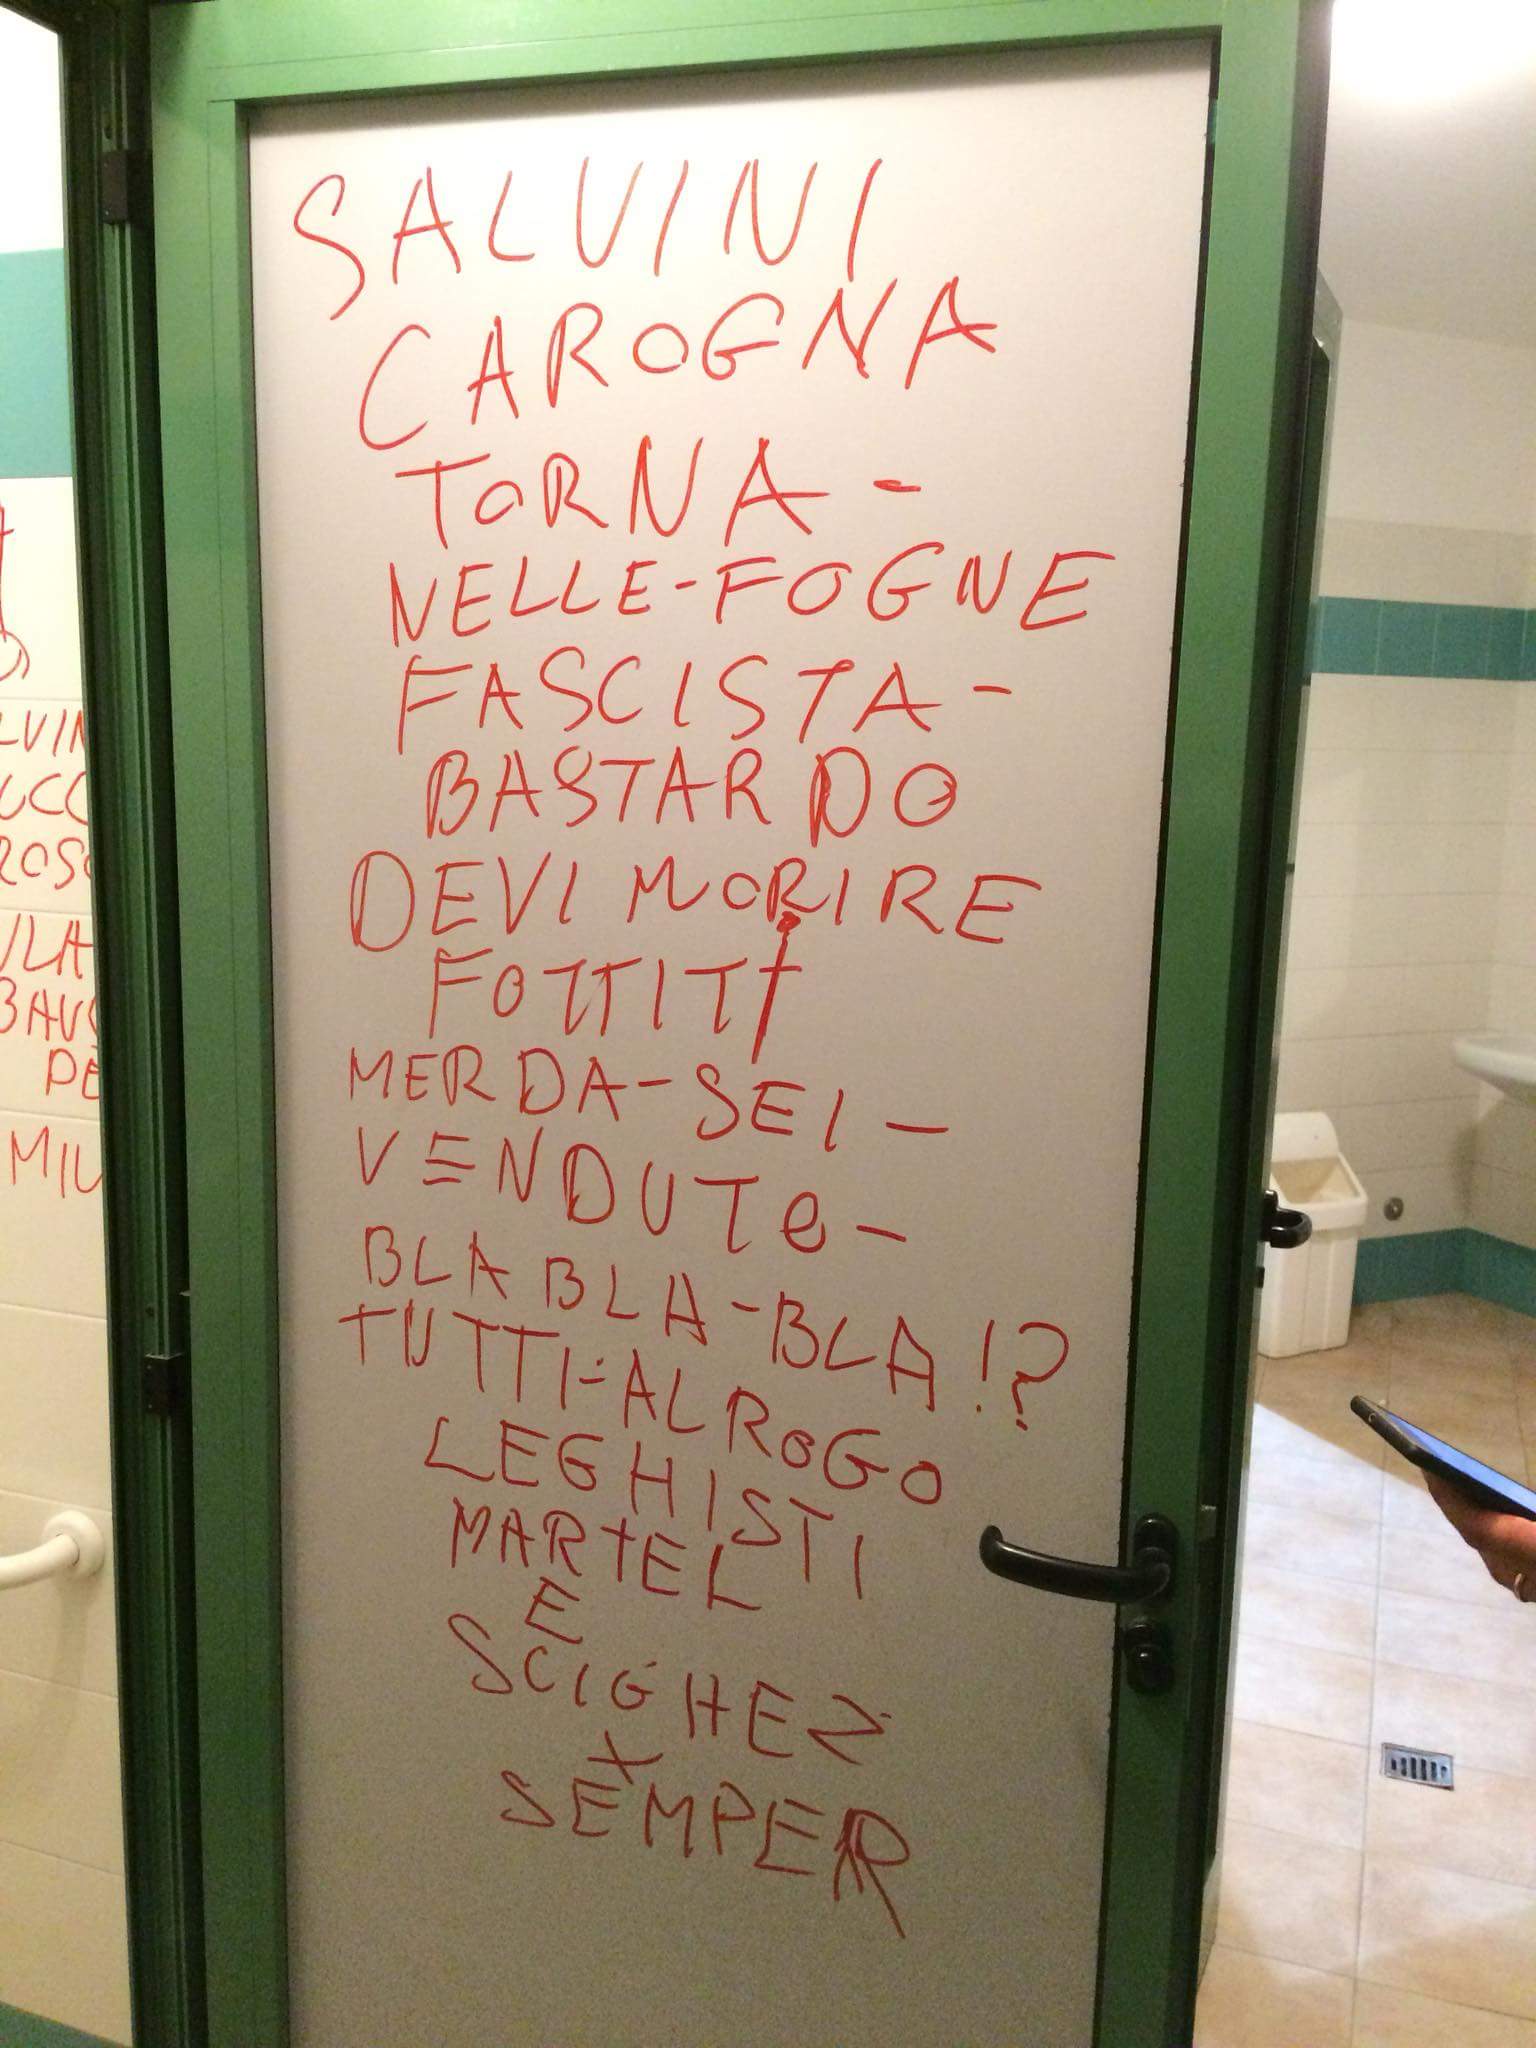 SALVINI
CAROGNA
TORNA -
NELLE-FOGNE
FASCISTA-
BASTARDO
DEVI MORIRE
FOTTITI
MERDA-SEI-
VENDUTO-
BLA BLA-BLA!?
TUTTI-AL ROGO
LEGHISTI
MARTEL
E
SCIGHEZ
X
SEMPER
LVIN
UCC
ROSC
ULA
BAVO
DE
MIU